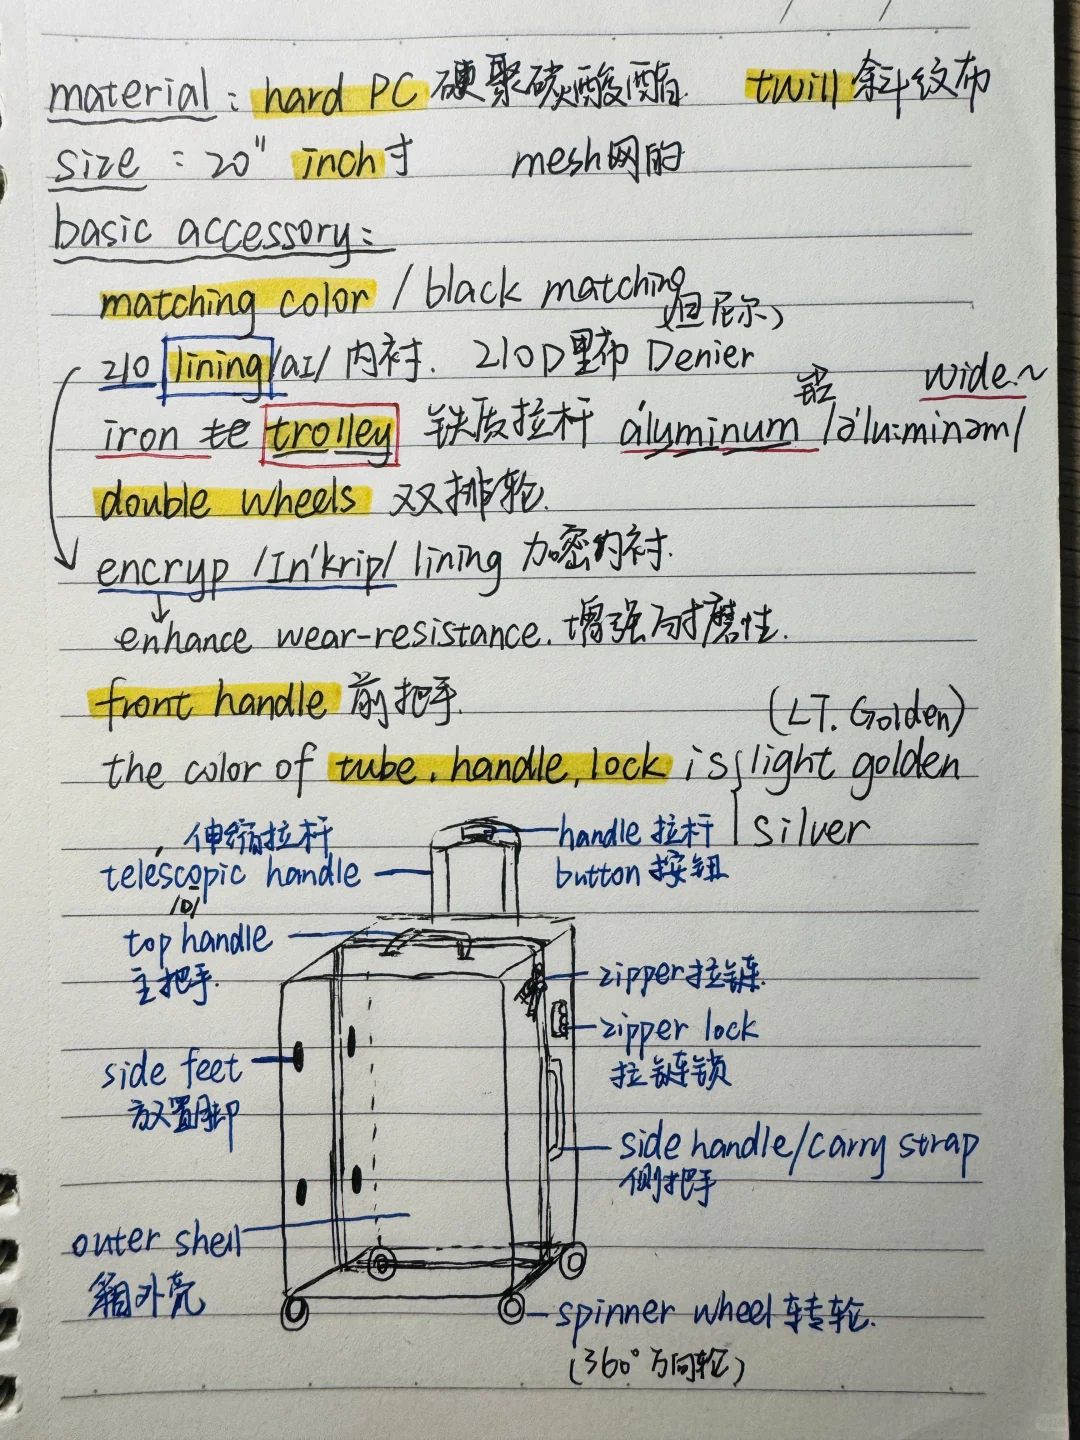 material : hard PC 硬聚碳酸酯. twill 斜纹布
size : 20" inch寸 mesh网的
basic accessory:
matching color / black matching
(旦尼尔)
210 lining/aI/ 内衬. 210D里布 Denier
铝 wide.~
iron trolley 铁质拉杆 áluminum /ə'lu:minəm/
double wheels 双排轮.
encryp /In'krip/ lining 加密内衬.
enhance wear-resistance. 增强耐磨性.
front handle 前把手.
(LT. Golden)
the color of tube. handle, lock is light golden
silver
伸缩拉杆
telescopic handle
/D/
handle 拉杆
button 按钮
top handle
主把手.
zipper拉链.
zipper lock
拉链锁
side feet
放置脚
side handle/carry strap
侧把手
outer shell
箱外壳
spinner wheel 转轮.
(360°万向轮)